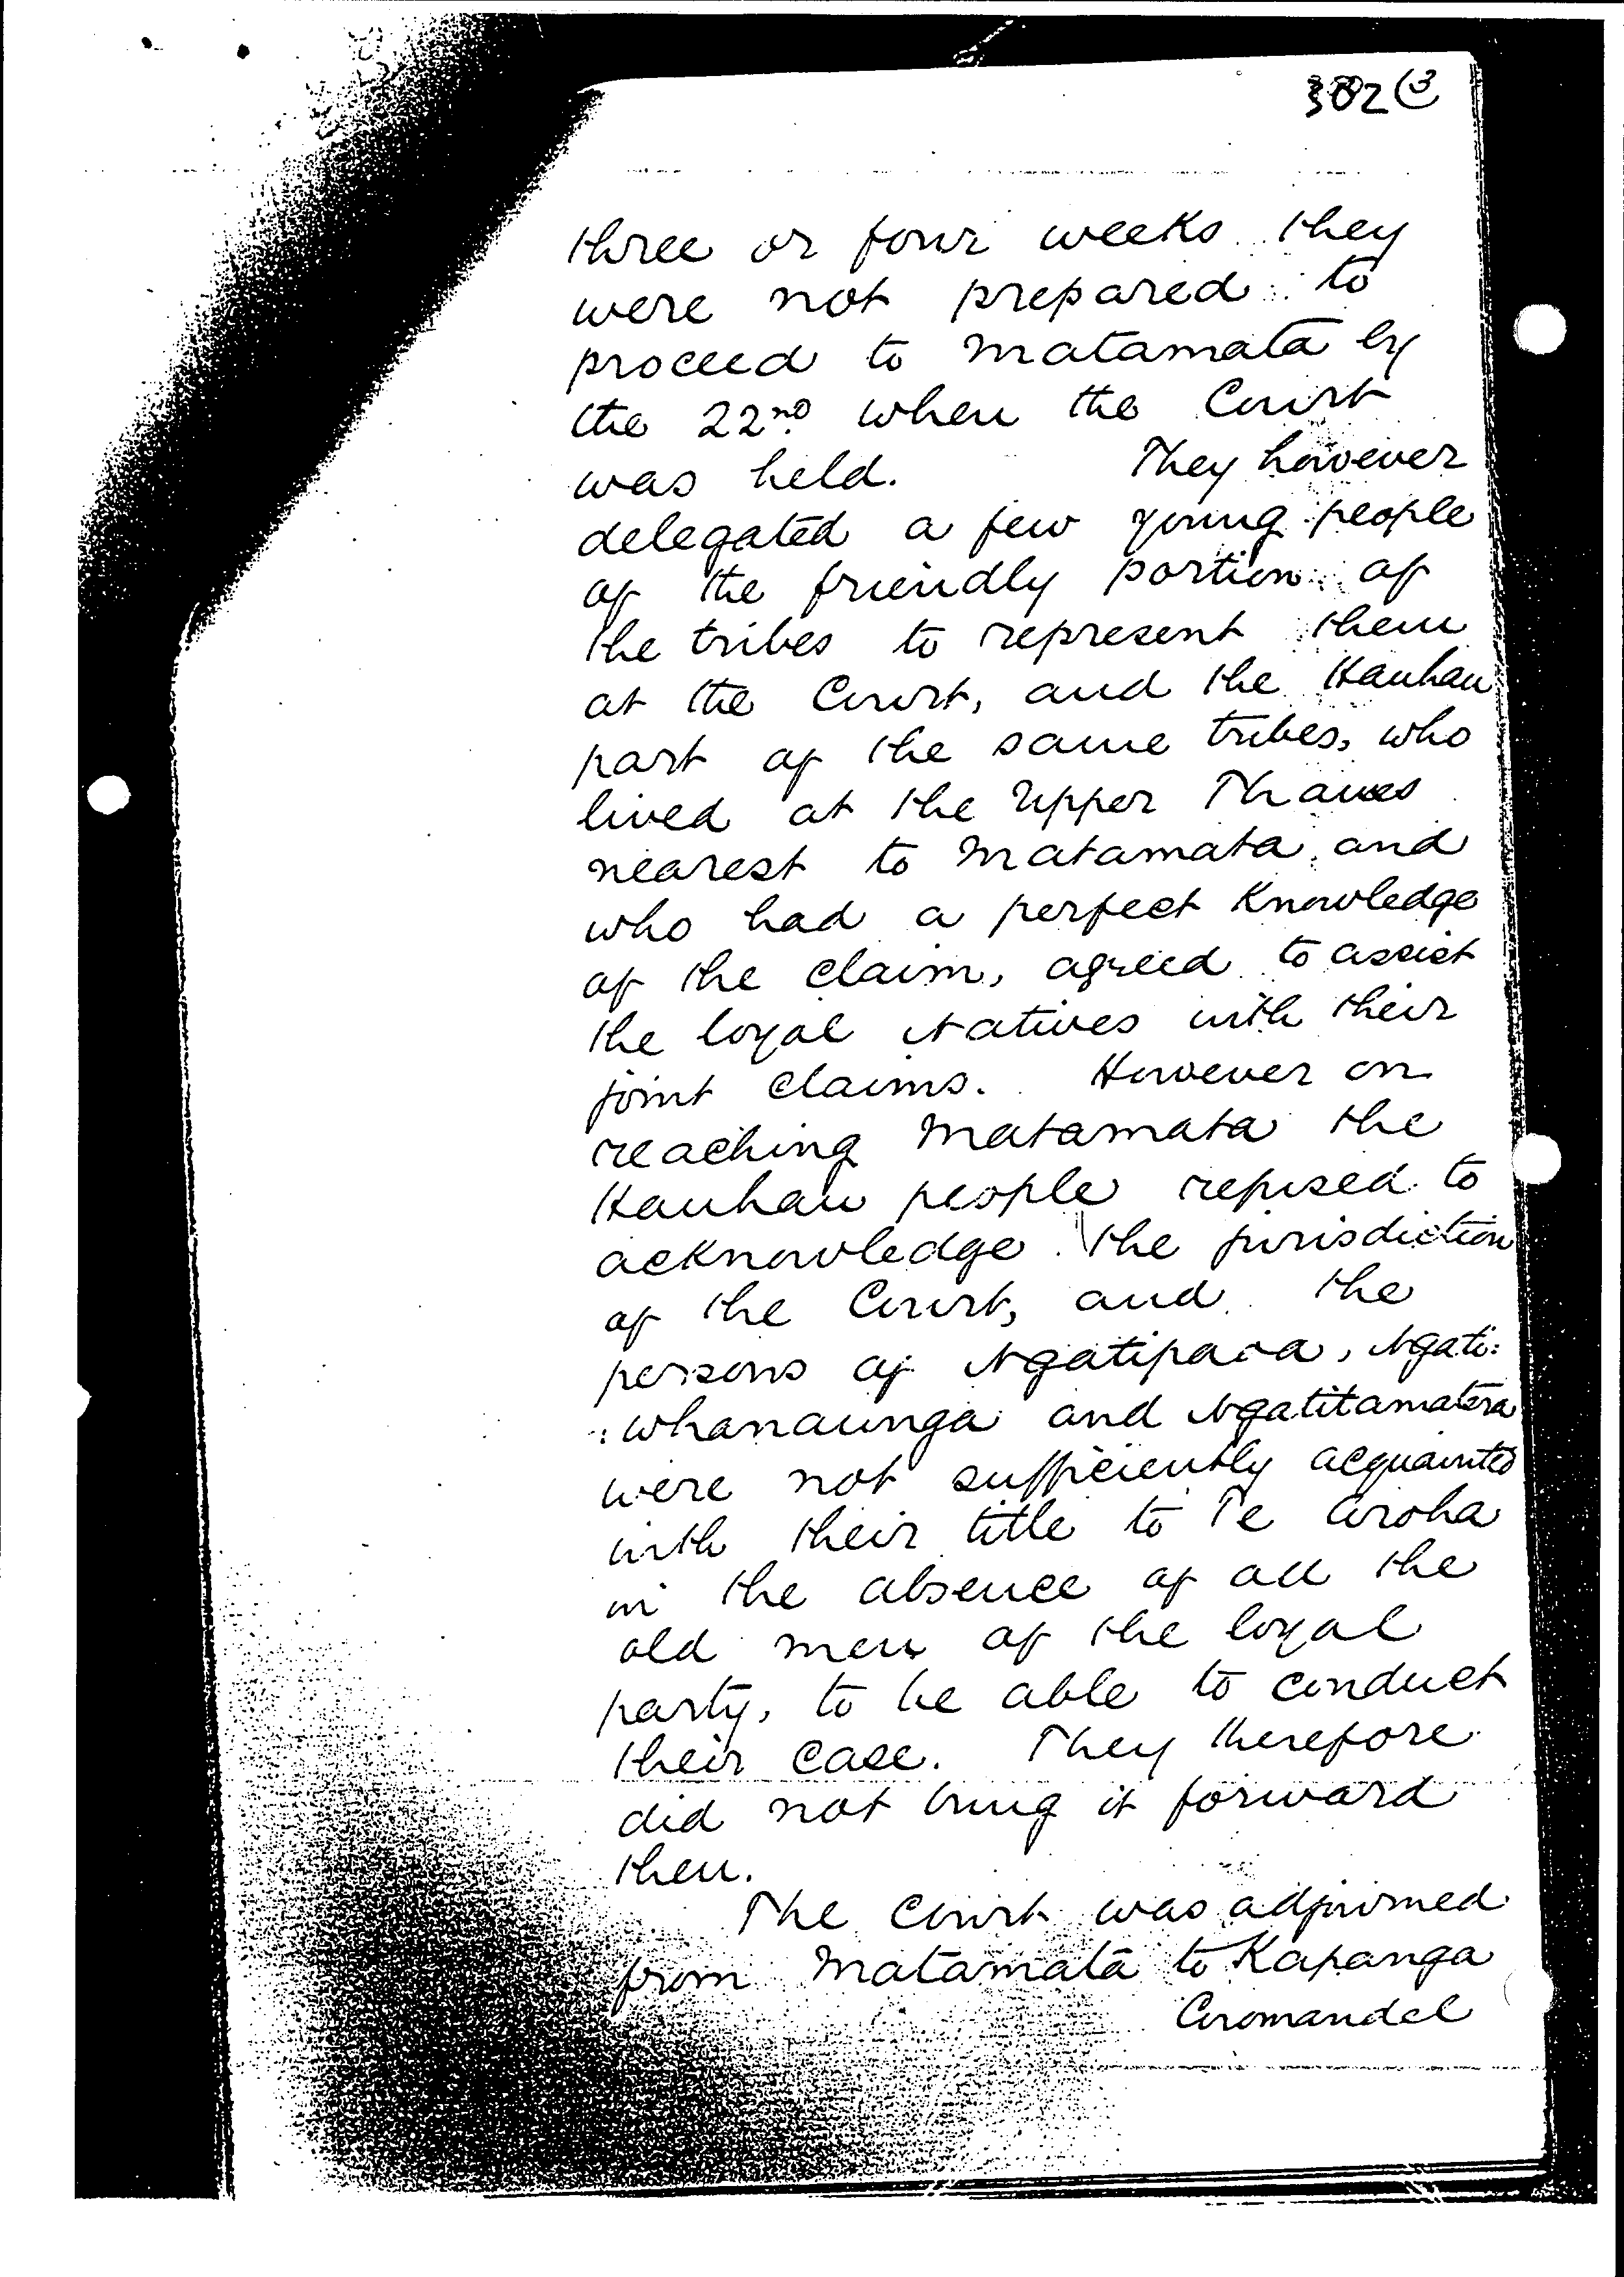 302 (3
three or four weeks they
were not prepared to
proceed to Matamata by
the 22nd when the Court
was held. They however
delegated a few young people
of the friendly portion of
the tribes to represent them
at the Court, and the Hauhau
part of the same tribes, who
lived at the Upper Thames
nearest to Matamata, and
who had a perfect Knowledge
of the claim, agreed to assist
the loyal Natives with their
joint claims. However on
reaching Matamata the
Hauhau people refused to
acknowledge the jurisdiction
of the Court, and the
persons of Ngatipaoa, Ngati:
:whanaunga and Ngatitamatera
were not sufficiently acquainted
with their title to Te Aroha
in the absence of all the
old men of the loyal
party, to be able to conduct
their case. They therefore
did not bring it forward
then.
The Court was adjourned
from Matamata to Kapanga
Coromandel